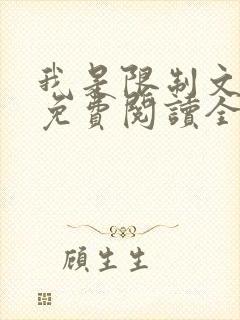 我是限制文
免費閱讀全
顧生生